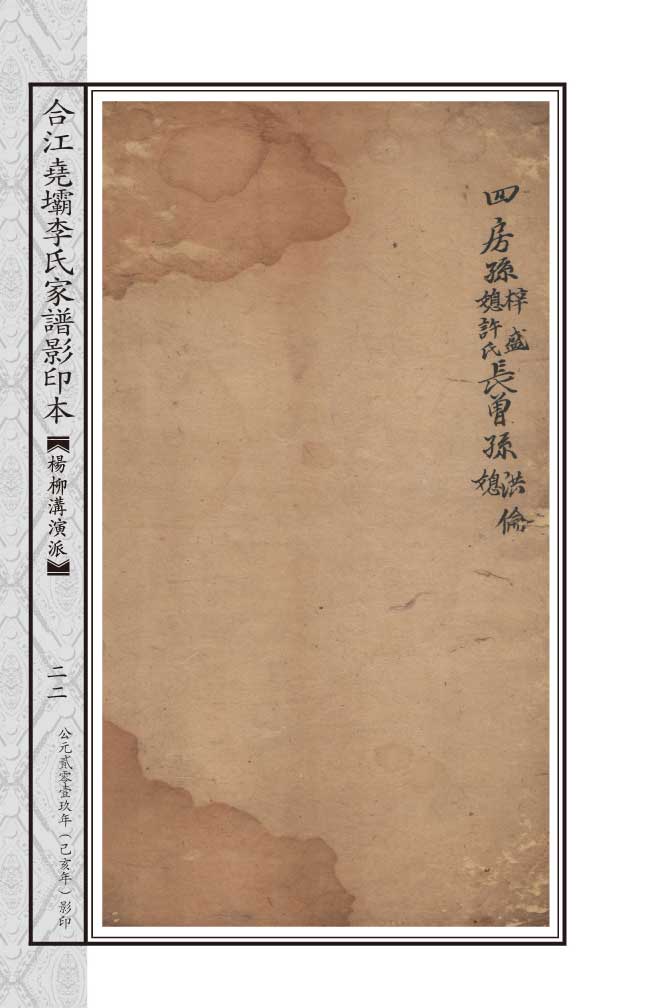 四房孫梓盛
媳許氏長曾孫洪倫
媳
合江堯壩李氏家譜影印本
【楊柳溝演派】
二二
公元貳零壹玖年（己亥年）影印